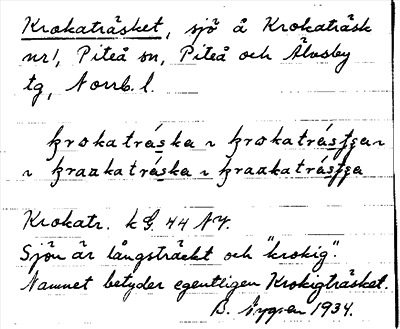 Krokaträsket, sjö å Krokaträsk
nr 1, Piteå sn, Piteå och Älvsby
tg, Norrb. l.
krokatráska ~ krokatrásʃʒa ~
~ kraakatráska ~ kraakatrásʃʒa
Krokatr. kG. 44 NY.
Sjön är långsträckt och "krokig".
Namnet betyder egentligen Krokigträsket.
B. 1934.